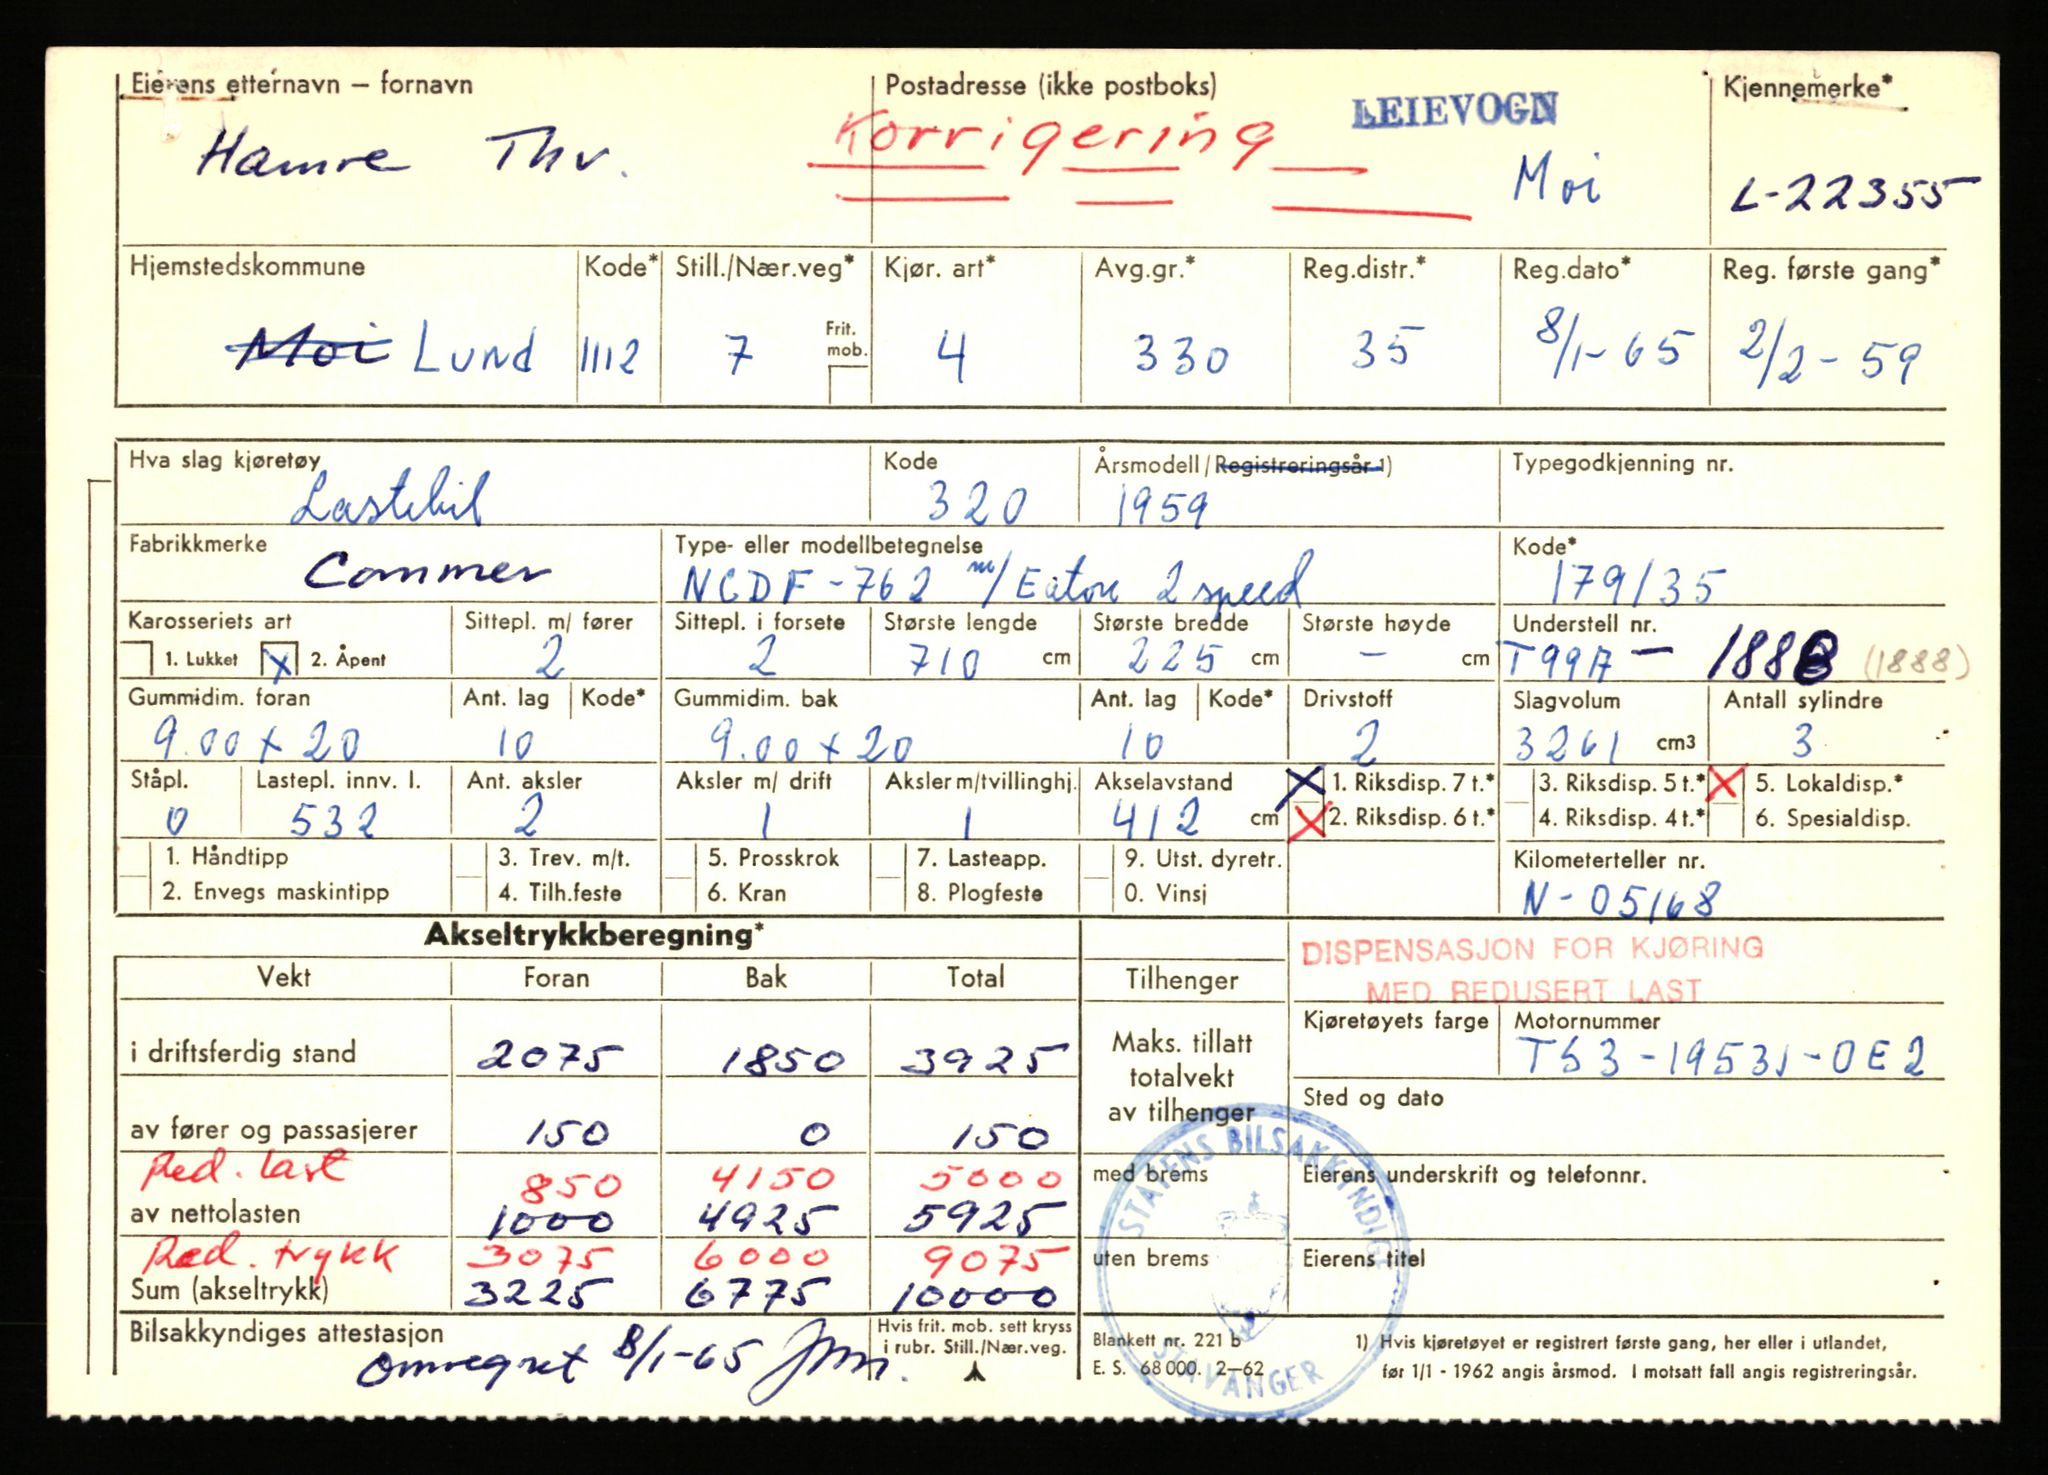 Eierens etternavn – fornavn Postadresse (ikke postboks) Kjennemerke*
Korrigering LEIEVOGN
Hamre Thv. Moi L-22355
Hjemstedskommune Kode* Still./Nær.veg* Kjør. art* Avg.gr.* Reg.distr.* Reg.dato* Reg. første gang*
Frit. mob.
Moi Lund 1112 7 4 330 35 8/1-65 2/2-59
Hva slag kjøretøy Kode Årsmodell/Registreringsår 1) Typegodkjenning nr.
Lastebil 320 1959
Fabrikkmerke Type- eller modellbetegnelse Kode*
Commer NCDF-762 m/Eaton 2 speed 179135
Karosseriets art Sittepl. m/ fører Sittepl. i forsete Største lengde Største bredde Største høyde Understell nr.
1. Lukket X 2. Åpent 2 2 710 cm 225 cm – cm T99A – 1888 (1888)
Gummidim. foran Ant. lag Kode* Gummidim. bak Ant. lag Kode* Drivstoff Slagvolum Antall sylindre
9.00 x 20 10 9.00 x 20 10 2 3261 cm3 3
Ståpl. Lastepl. innv. l. Ant. aksler Aksler m/ drift Aksler m/tvillinghj. Akselavstand X 1. Riksdisp. 7 t.* 3. Riksdisp. 5 t.* X 5. Lokaldisp.*
0 532 2 1 1 412 cm X 2. Riksdisp. 6 t.* 4. Riksdisp. 4 t.* 6. Spesialdisp.
1. Håndtipp 3. Trev. m/t. 5. Prosskrok 7. Lasteapp. 9. Utst. dyretr. Kilometerteller nr.
2. Envegs maskintipp 4. Tilh.feste 6. Kran 8. Plogfeste 0. Vinsj N-05168
Akseltrykkberegning* DISPENSASJON FOR KJØRING
Vekt Foran Bak Total Tilhenger MED REDUSERT LAST
Kjøretøyets farge Motornummer
i driftsferdig stand 2075 1850 3925 Maks. tillatt totalvekt av tilhenger TS3-19531-OE2
Sted og dato
av fører og passasjerer 150 0 150
Red. last 850 4150 5000 med brems Eierens underskrift og telefonnr.
av nettolasten 1000 4925 5925
Red. trykk 3075 6000 9075 uten brems Eierens titel
Sum (akseltrykk) 3225 6775 10000
STATENS BILSAKKYNDIGE STAVANGER
Bilsakkyndiges attestasjon Hvis frit. mob. sett kryss Blankett nr. 221 b 1) Hvis kjøretøyet er registrert første gang, her eller i utlandet,
omregnet 8/1-65 i rubr. Still./Nær.veg. E. S. 68 000. 2–62 før 1/1 - 1962 angis årsmod. I motsatt fall angis registreringsår.